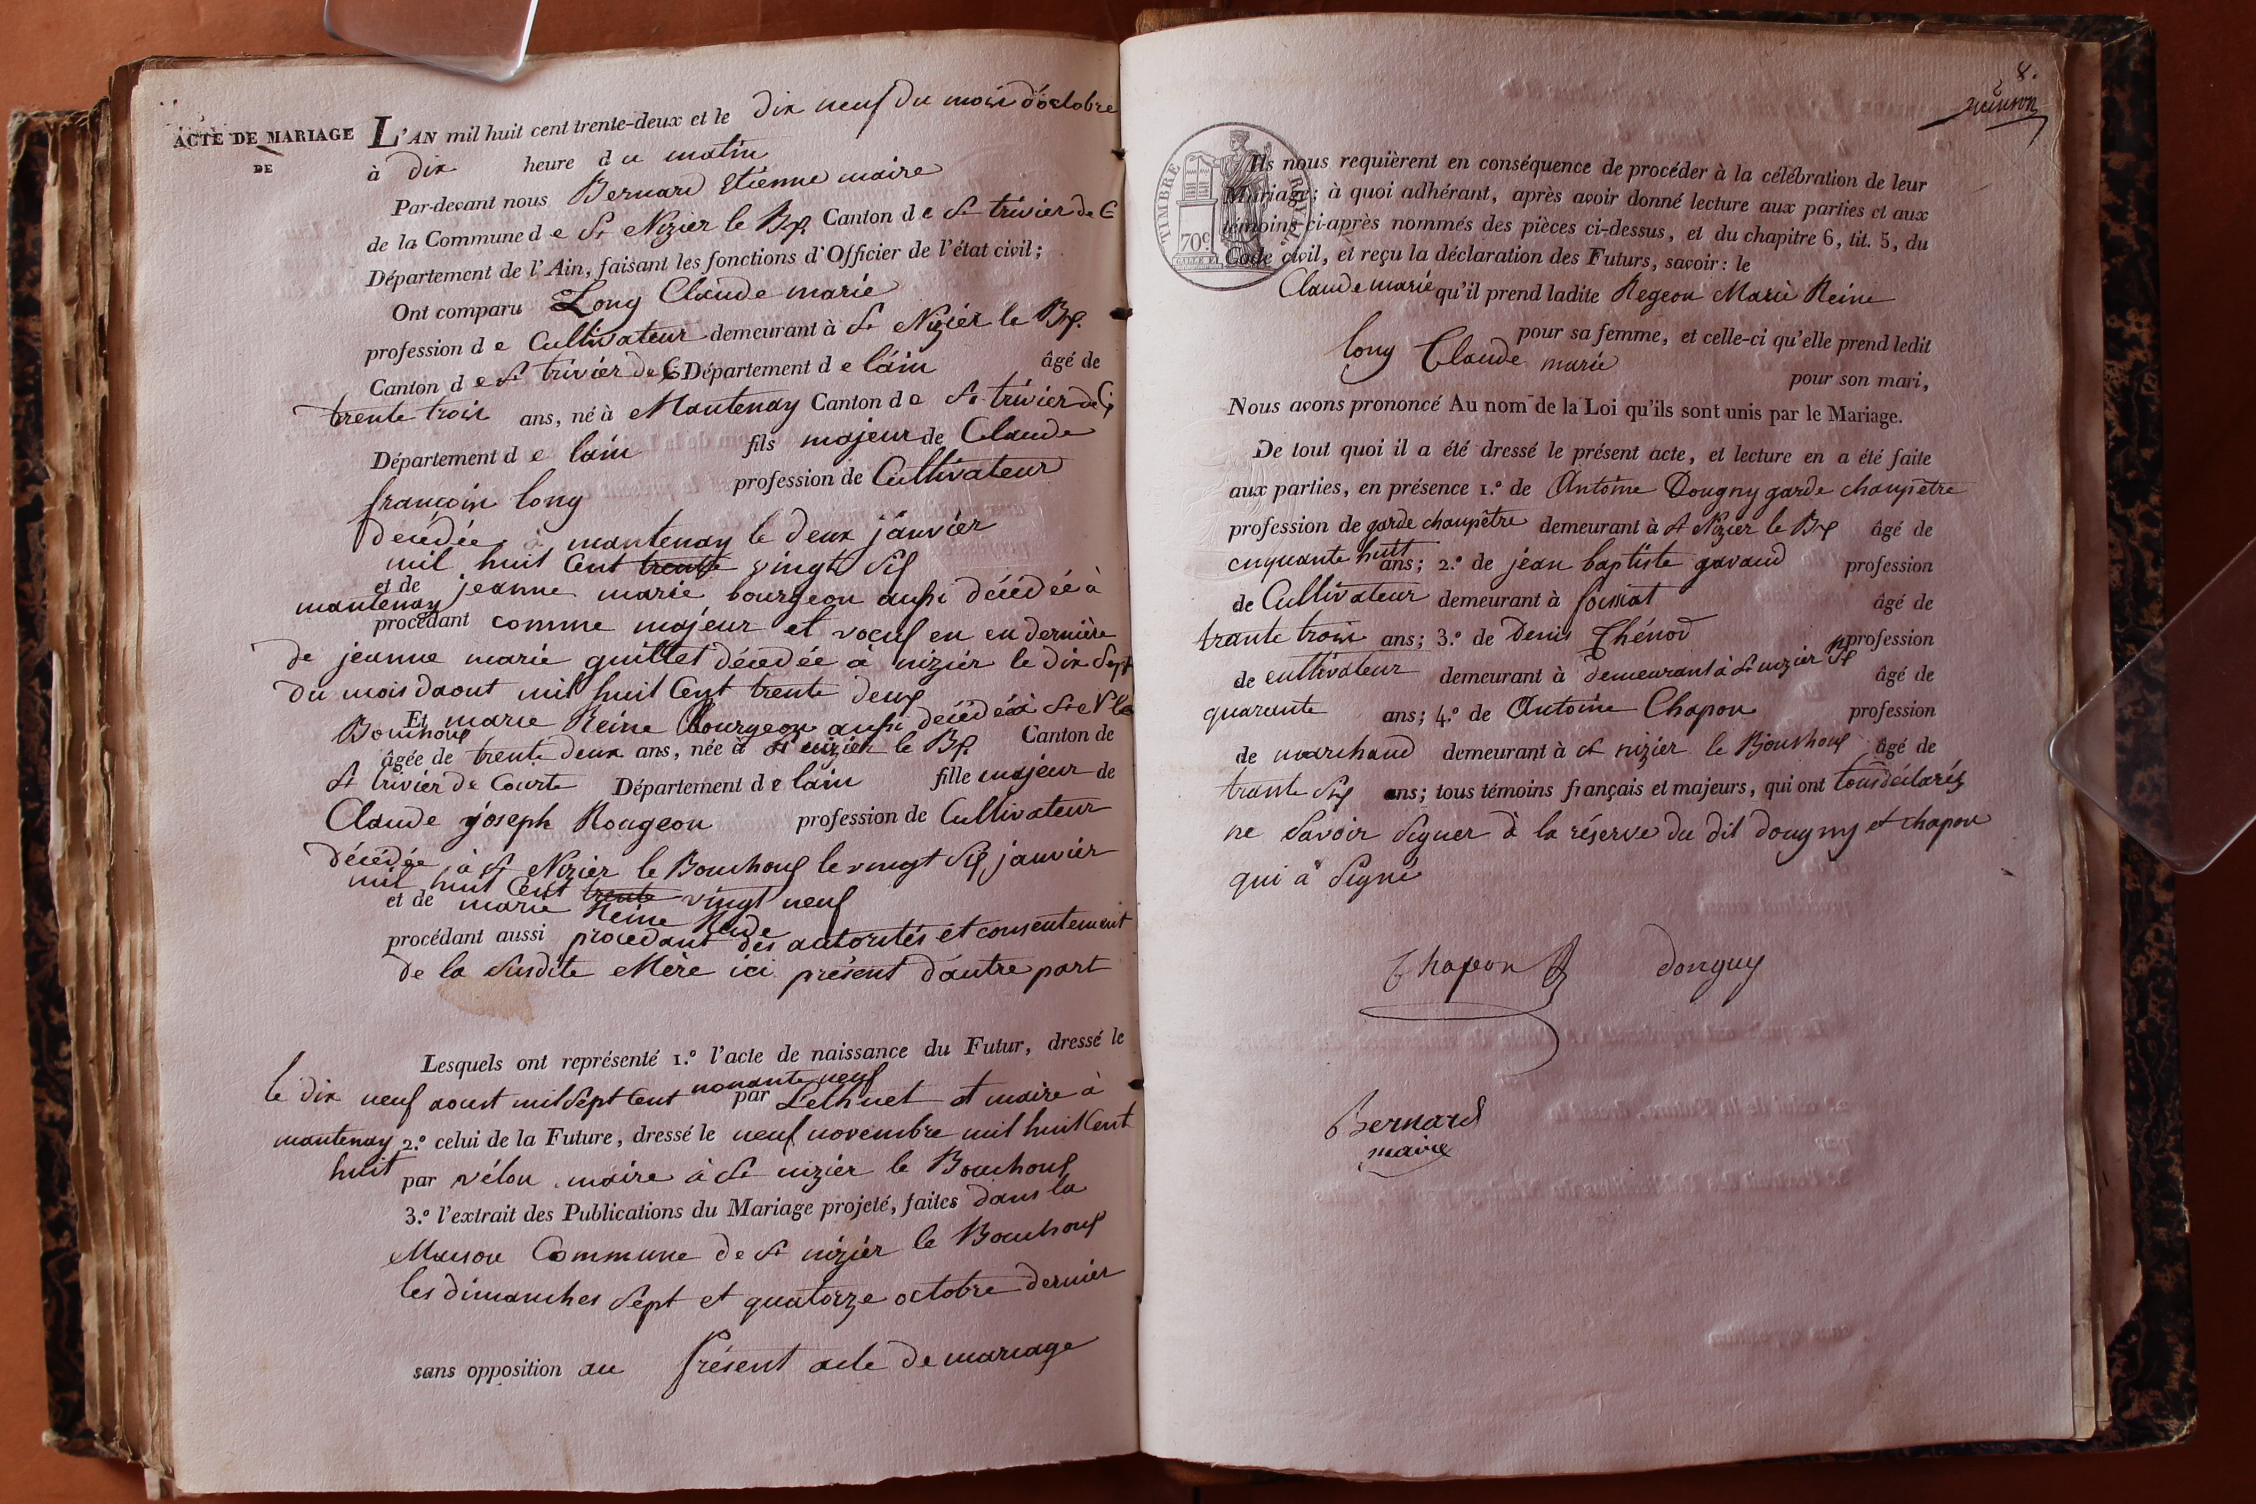 ACTE DE MARIAGE
DE
L'AN mil huit cent trente-deux et le dix neuf du mois d'octobre
à dix heure du matin
Par-devant nous Bernard Etienne maire
de la Commune de St Nizier le Bx. Canton de St trivier de C
Département de l'Ain, faisant les fonctions d'Officier de l'état civil;
Ont comparu Long Claude marie
profession de Cultivateur demeurant à St Nizier le Bx.
Canton de St trivier de C Département de láin âgé de
trente trois ans, né à Mantenay Canton de St trivier de C
Département de láin fils majeur de Claude
françois long profession de Cultivateur
décédée à mantenay le deux janvier
mil huit Cent trente vingt six
et de jeanne marie bourgeon aussi décédée à
mantenay
procédant comme majeur et voeuf en en dernière
de jeanne marie guillet décédée à nizier le dix sept
du mois daout mil huit Cent trente deux
Et marie Reine Bourgeon aussi décédéé à St N le
Bouchoux
âgée de trente deux ans, née à St nizier le Bx. Canton de
St trivier de Courte Département de láin fille majeur de
Claude joseph Rougeon profession de Cultivateur
décédée à St Nizier le Bouchoux le vingt six janvier
mil huit Cent trente vingt neuf
et de marie Reine
procédant aussi procédant des autorités et consentement
de la susdite Mère ici présent d'autre part
Lesquels ont représenté 1.º l'acte de naissance du Futur, dressé le
le dix neuf aoust mil sept Cent nonante neuf par maire à
mantenay 2.º celui de la Future, dressé le neuf novembre mil huit Cent
huit par vélon maire à St nizier le Bouchoux
3.º l'extrait des Publications du Mariage projeté, faites dans la
Maison Commune de St nizier le Bouchoux
les dimanches sept et quatorze octobre dernier
sans opposition au présent acte de mariage
8.
TIMBRE ROYAL
70 c.
Ils nous requièrent en conséquence de procéder à la célébration de leur
Mariage; à quoi adhérant, après avoir donné lecture aux parties et aux
témoins ci-après nommés des pièces ci-dessus, et du chapitre 6, tit. 5, du
Code civil, et reçu la déclaration des Futurs, savoir: le
Claude marie qu'il prend ladite Regeon Marie Reine
pour sa femme, et celle-ci qu'elle prend ledit
long Claude marie pour son mari,
Nous avons prononcé Au nom de la Loi qu'ils sont unis par le Mariage.
De tout quoi il a été dressé le présent acte, et lecture en a été faite
aux parties, en présence 1.º de Antoine Dougny garde chanpêtre
profession de garde chanpêtre demeurant à St Nizier le Bx âgé de
cnquante huit ans; 2.º de jean baptiste gavand profession
de Cultivateur demeurant à foissiat âgé de
trante trois ans; 3.º de Denis Thénod profession
de cultivateur demeurant à demeurant à St nizier Bx âgé de
quarante ans; 4.º de Antoine Chapon profession
de marchand demeurant à St nizier le Bouchoux âgé de
trante six ans; tous témoins français et majeurs, qui ont tous déclarés
ne savoir signer à la réserve du dit dougny et chapon
qui à signé
Chapon donguy
Bernard
maire